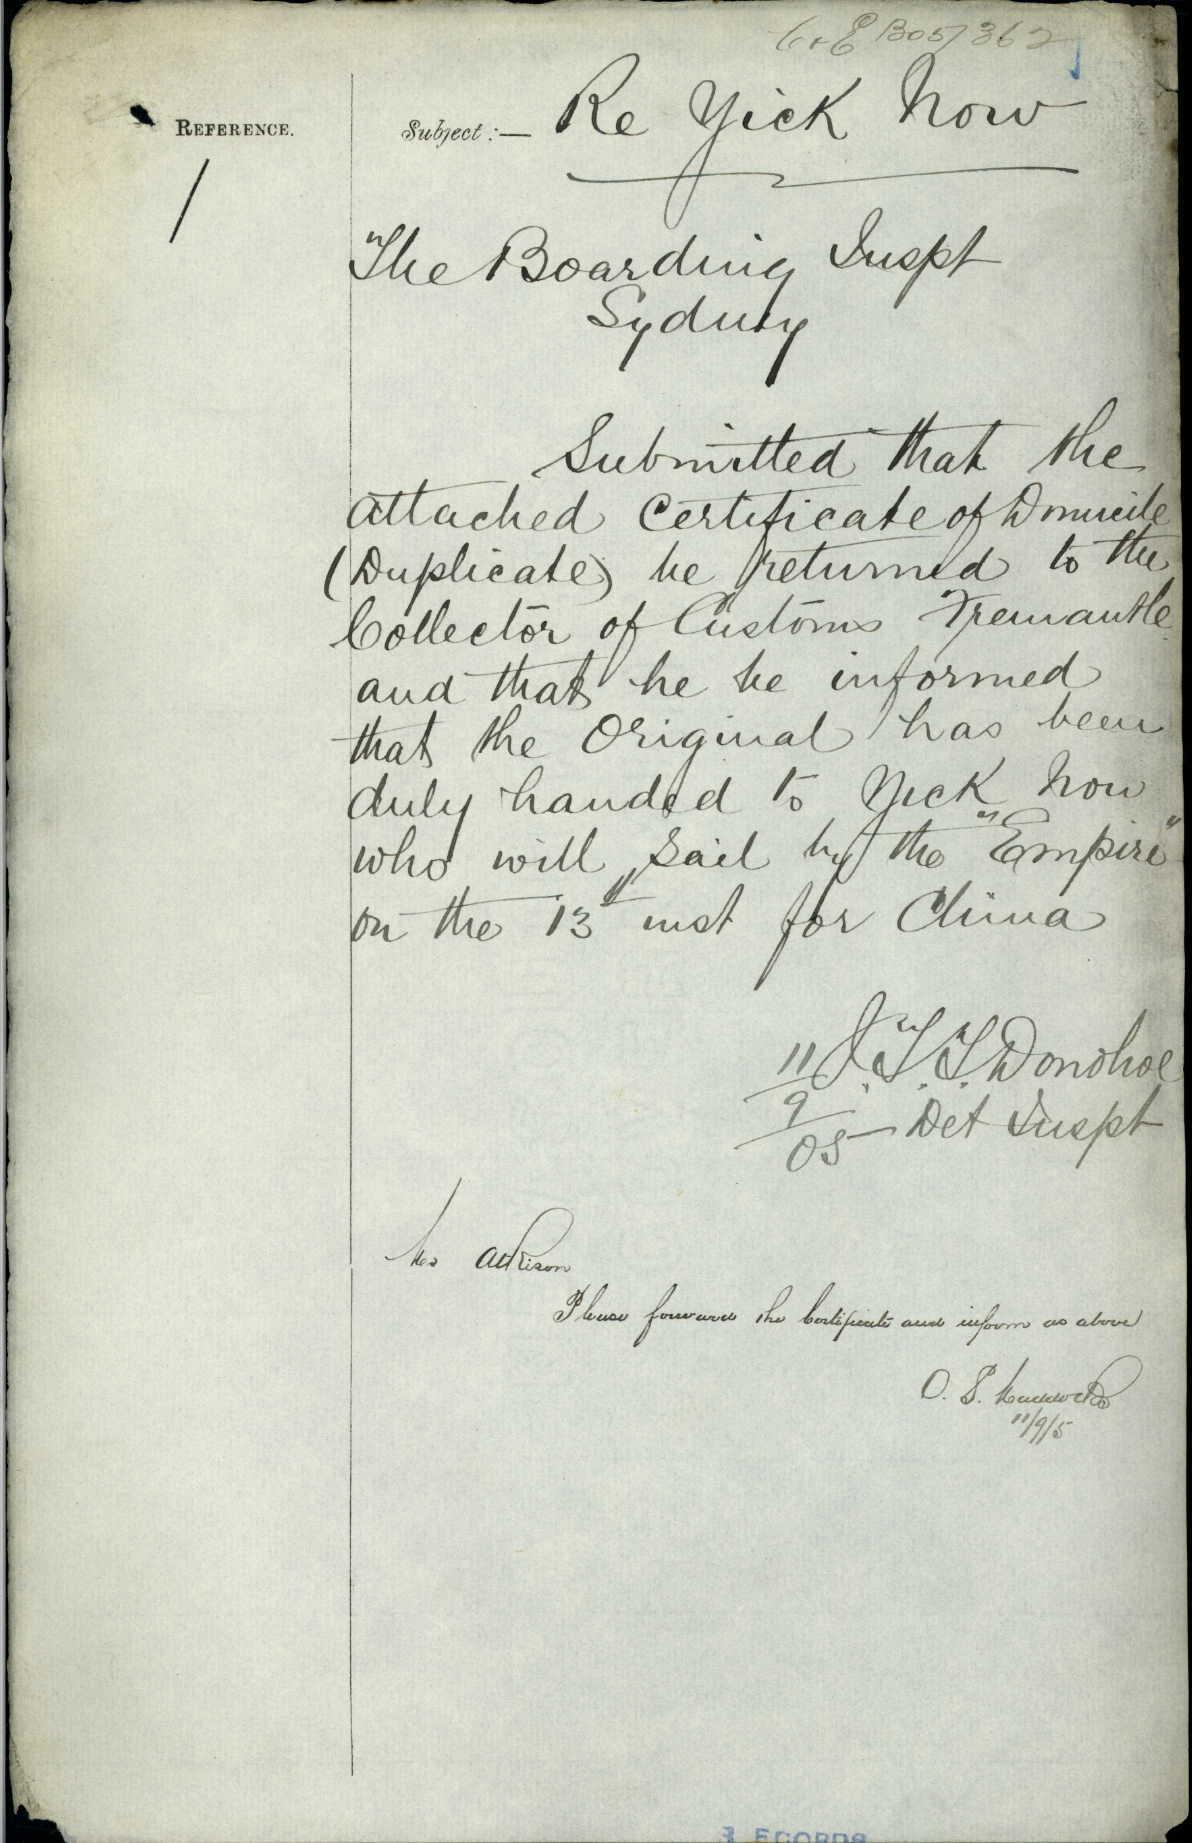 C & E B05/362
REFERENCE.
Subject:— Re Yick Now
1
The Boarding Inspt
Sydney
Submitted that the
attached Certificate of Domicile
(Duplicate) be returned to the
Collector of Customs Fremantle
and that he be informed
that the Original has been
duly handed to Yick Now
who will sail by the "Empire"
on the 13th inst for China
J. T. T. Donohoe
Det Inspt
11/9/05
Mr Atkison
Please forward the Certificate and inform as above
O. S.
11/9/5
ECORDS